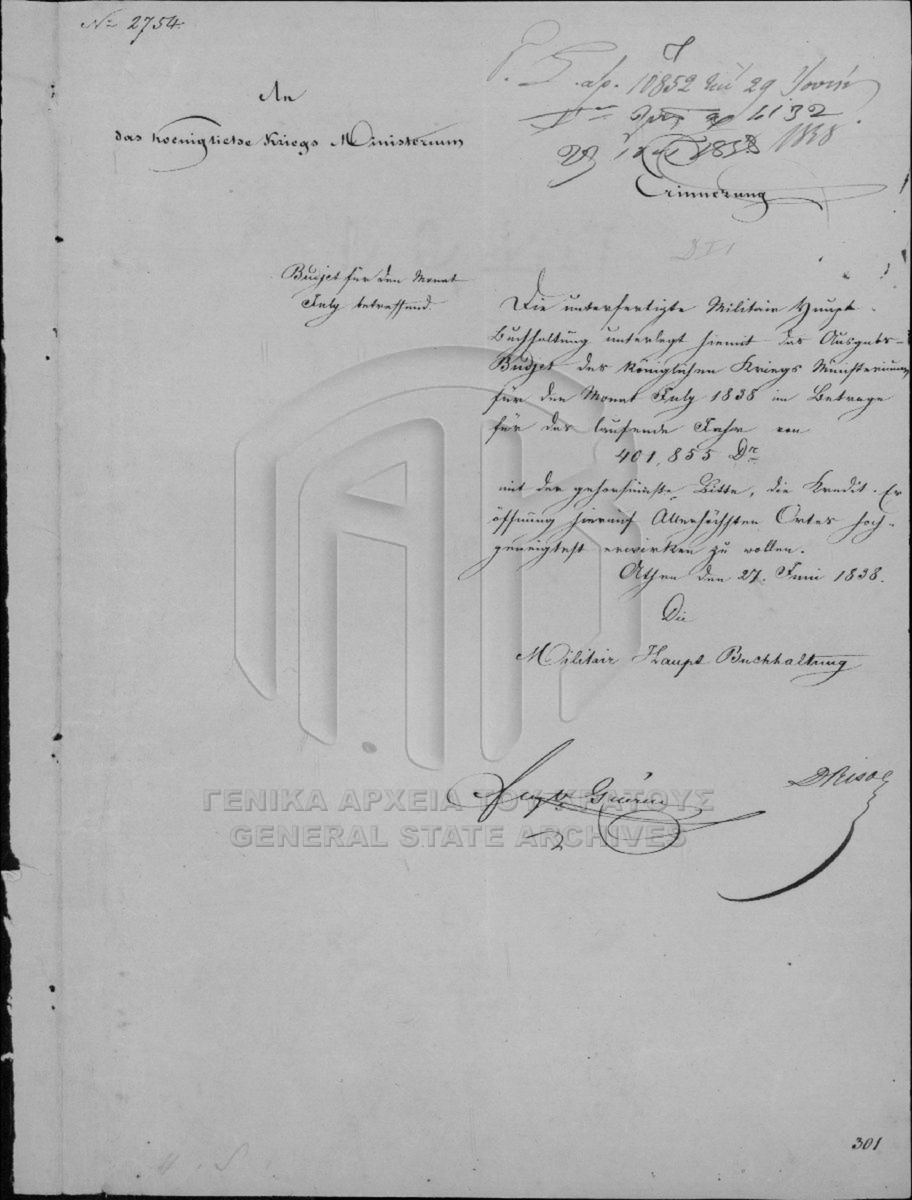 No 2754.
10852 29
6132
1838
1838
An
das koenigliche Kriegs Ministerium
Erinnerung
Budjet für den Monat
July betreffend.
Die unterfertigte Militair Haupt
Buchhaltung unterlegt hiemit das Ausgabs-
Budjet des königlichen Kriegs Ministeriums
für den Monat July 1838 im Betrage
für das laufende Jahr von
401,855 Dr
mit der gehorsamste Bitte, die Kredit-Er
öffnung hierauf Allerhöchsten Ortes hoch-
geneigtest erwirken zu wollen.
Athen den 27. Juni 1838.
Die
Militair Haupt Buchhaltung
ΓΕΝΙΚΑ ΑΡΧΕΙΑ ΤΟΥ ΚΡΑΤΟΥΣ
GENERAL STATE ARCHIVES
301